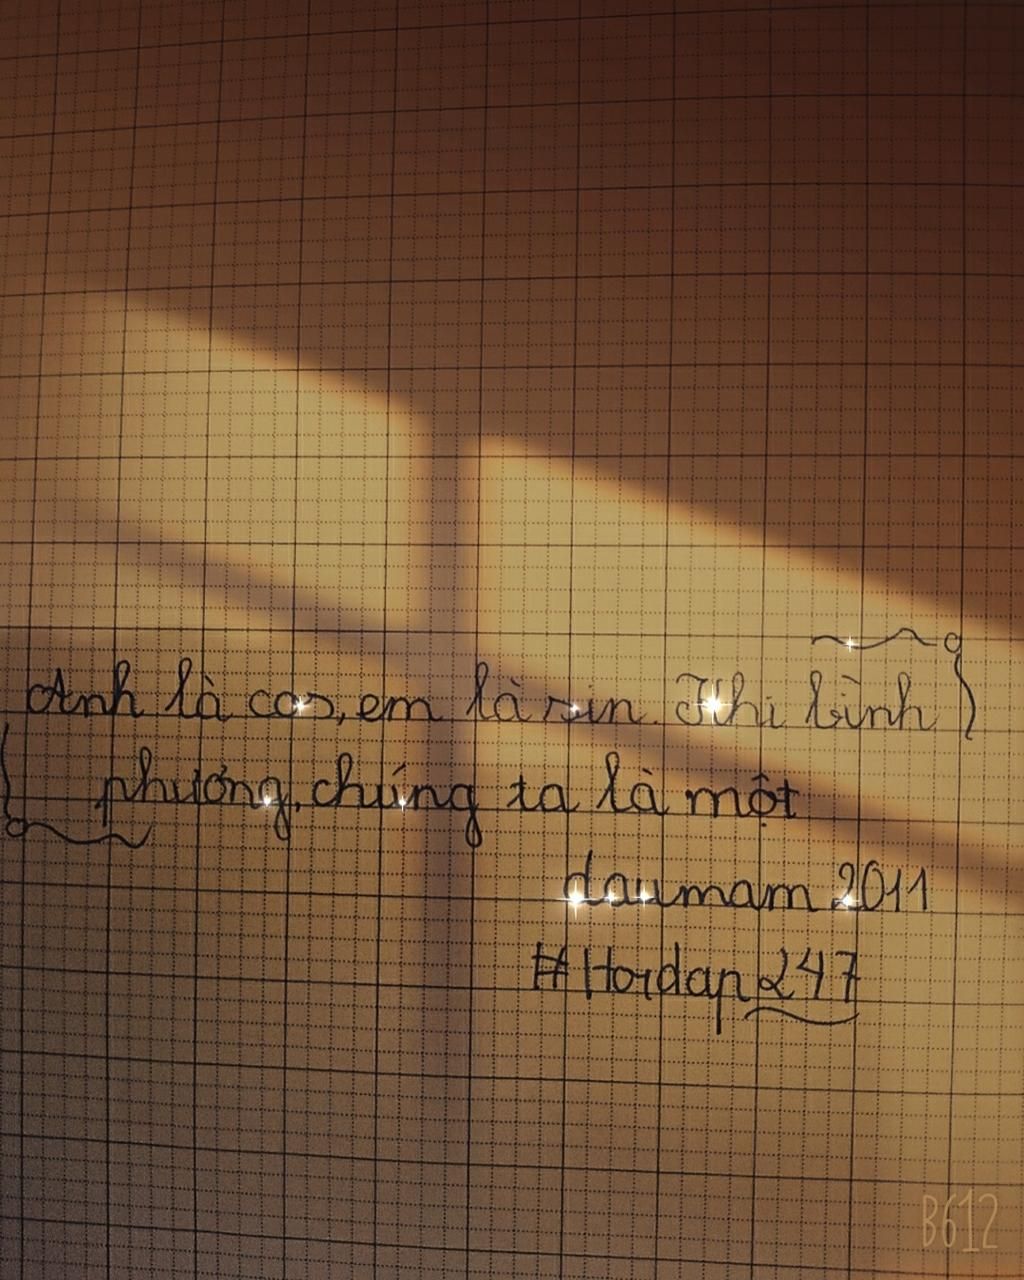 Anh là cos, em là sin. Khi bình
phương, chúng ta là một
daumam 2011
#Hoidap247
B612